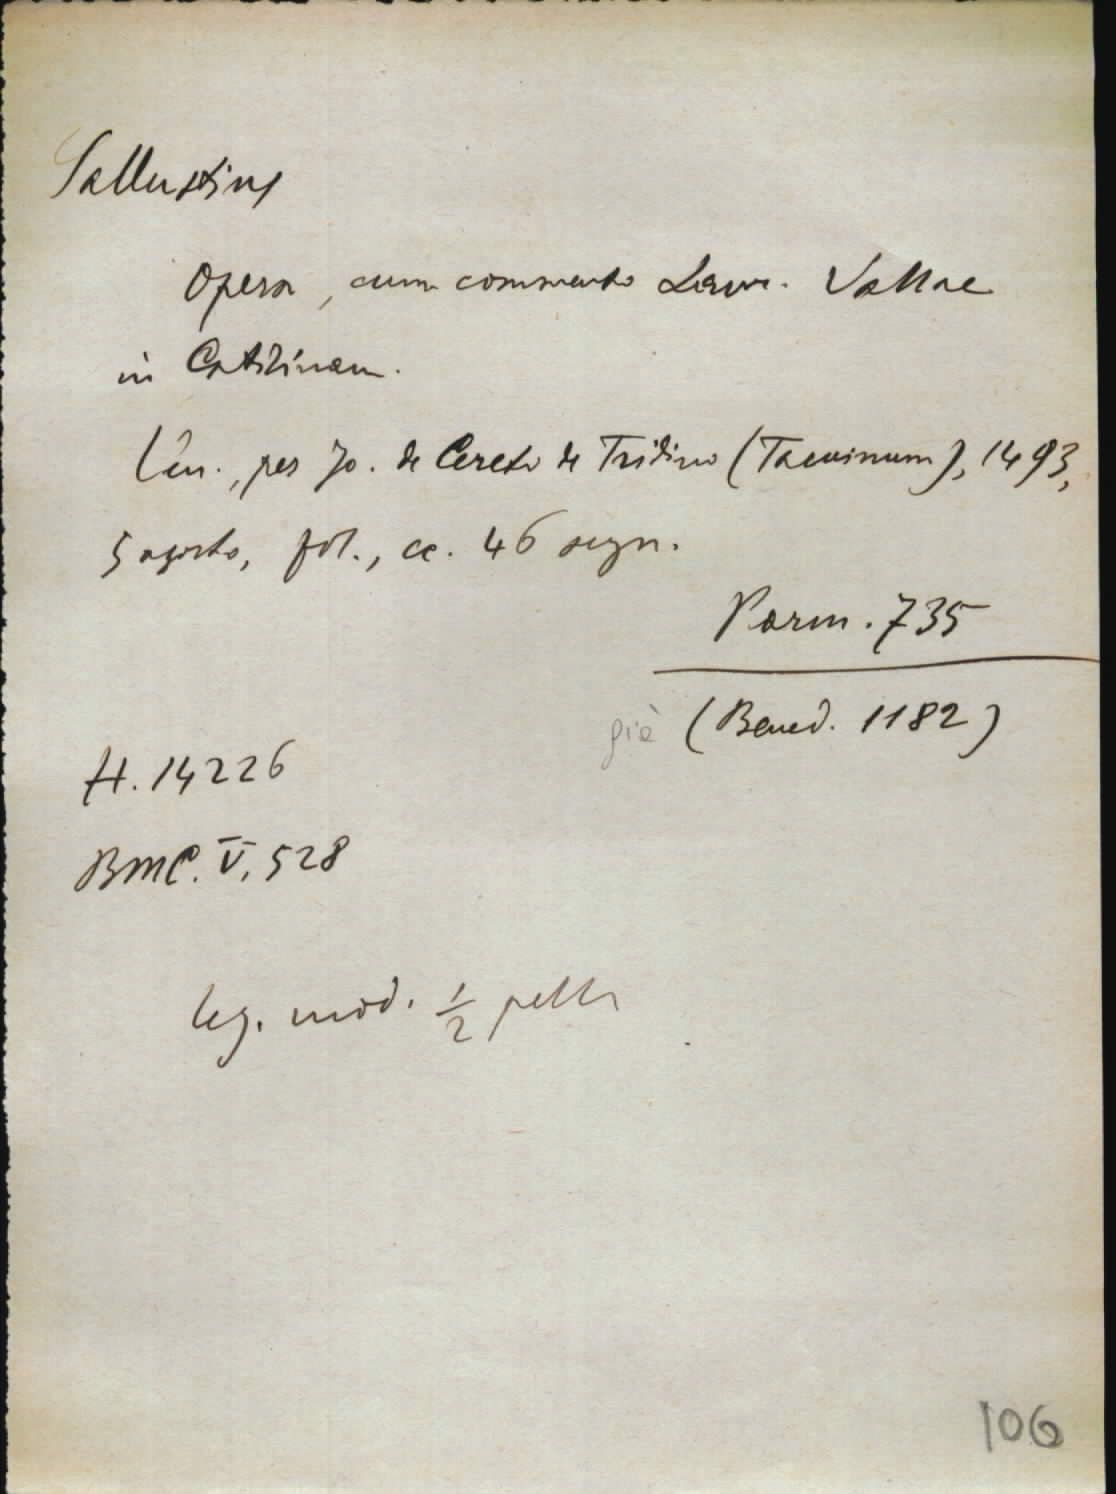 Sallustius
Opera, cum commento Laur. Vallae
in Catilinam.
Ven., per Jo. de Cereto de Tridino (Tacuinum), 1493,
5 agosto, fol., cc. 46 segn.
Parm. 735
già (Bened. 1182)
H. 14226
BMC. V, 528
leg. mod. 1/2 pelle
106